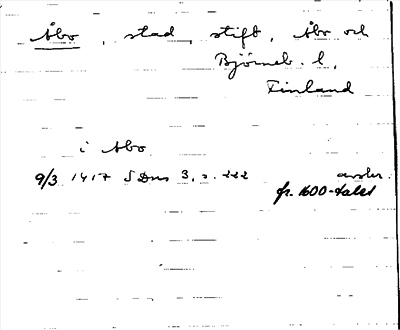 Åbo, stad, stift, Åbo och
Björneb. l,
Finland
i Abo
9/3 1417 SDns 3, s. 222 avskr.
fr. 1600-talet